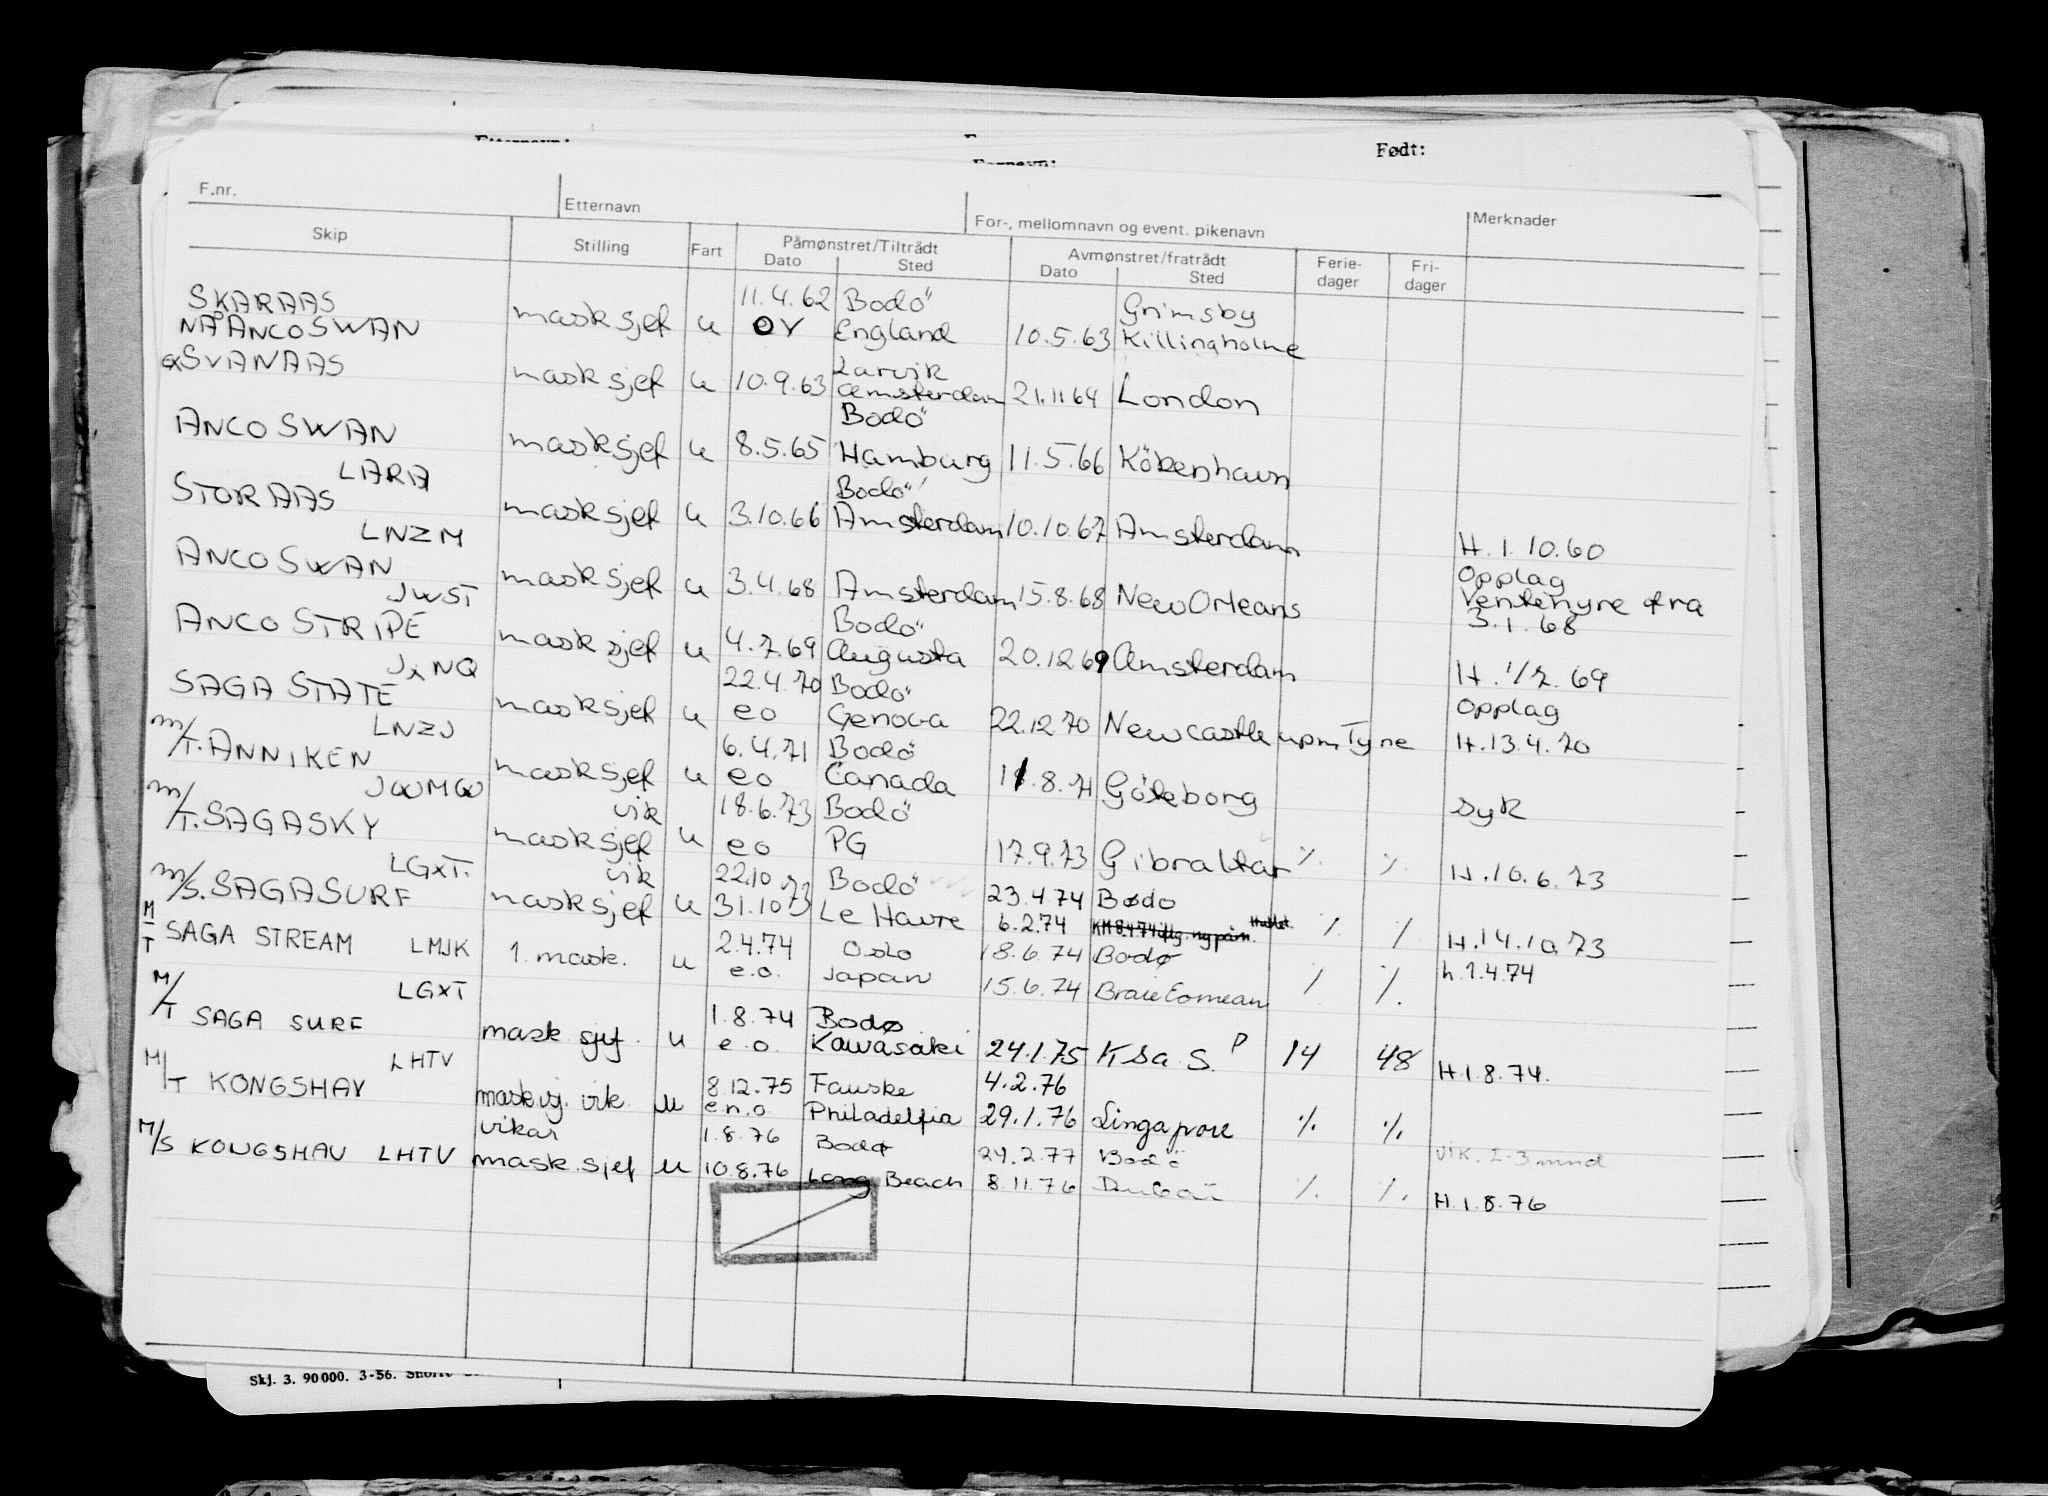 Født:
F.nr.
Etternavn
For-, mellomnavn og event. pikenavn
Merknader
Skip
Stilling
Fart
Påmønstret/Tiltrådt
Dato
Sted
Avmønstret/fratrådt
Dato
Sted
Ferie-
dager
Fri-
dager
SKARAAS 11.4.62 Bodö Grimsby
NÅ ANCO SWAN mask sjef u OV England 10.5.63 Killingholme
ex SVANAAS Larvik
mask sjef u 10.9.63 Amsterdam 21.11 64 London
Bodö
ANCO SWAN mask sjef u 8.5.65 Hamburg 11.5.66 Köbenhavn
LARA Bodö
STORAAS mask sjef u 3.10.66 Amsterdam 10.10.67 Amsterdam
LNZM H. 1.10.60
ANCO SWAN mask sjef u 3.4.68 Amsterdam 15.8.68 New Orleans Opplag
JWST Bodö Ventehyre fra
3.1.68
ANCO STRIPE mask sjef u 4.7.69 Augusta 20.12 69 Amsterdam
JXNQ 22.4.70 Bodö H. 1/7. 69
SAGA STATE mask sjef u eo Genova 22.12.70 Newcastle upon Tyne Opplag
LNZJ 6.4.71 Bodö H.13.4.70
m/T. ANNIKEN mask sjef u eo Canada 11.8.71 Göteborg
JWMW vik 18.6.73 Bodö syk
m/T. SAGASKY mask sjef u eo PG 17.9.73 Gibraltar % %
LGXT. vik 22.10.73 Bodö H.10.6.73
m/s. SAGASURF mask sjef u 31.10 73 Le Havre 23.4.74 Bødo
6.2.74 % %
H.14.10.73
M/T SAGA STREAM LMJK 1. mask. u 2.4.74 Oslo 18.6.74 Bodø
e.o. Japan 15.6.74 % % h.1.4.74
LGXT
M/T SAGA SURF mask sjef. u 1.8.74 Bodø
e.o. Kawasaki 24.1.75 14 48 H.1.8.74.
LHTV
M/T KONGSHAV 8.12.75 Fauske 4.2.76
mask sj. vik. u e.n.o Philadelfia 29.1.76 Singapore % %
vikar 1.8.76 Bodø 24.2.77 Bodö vik. I-3 mnd
M/S KONGSHAV LHTV mask. sjef u 10.8.76 Long Beach 8.11.76 Dubai % %
H.1.8.76
Skj. 3. 90 000. 3-56.